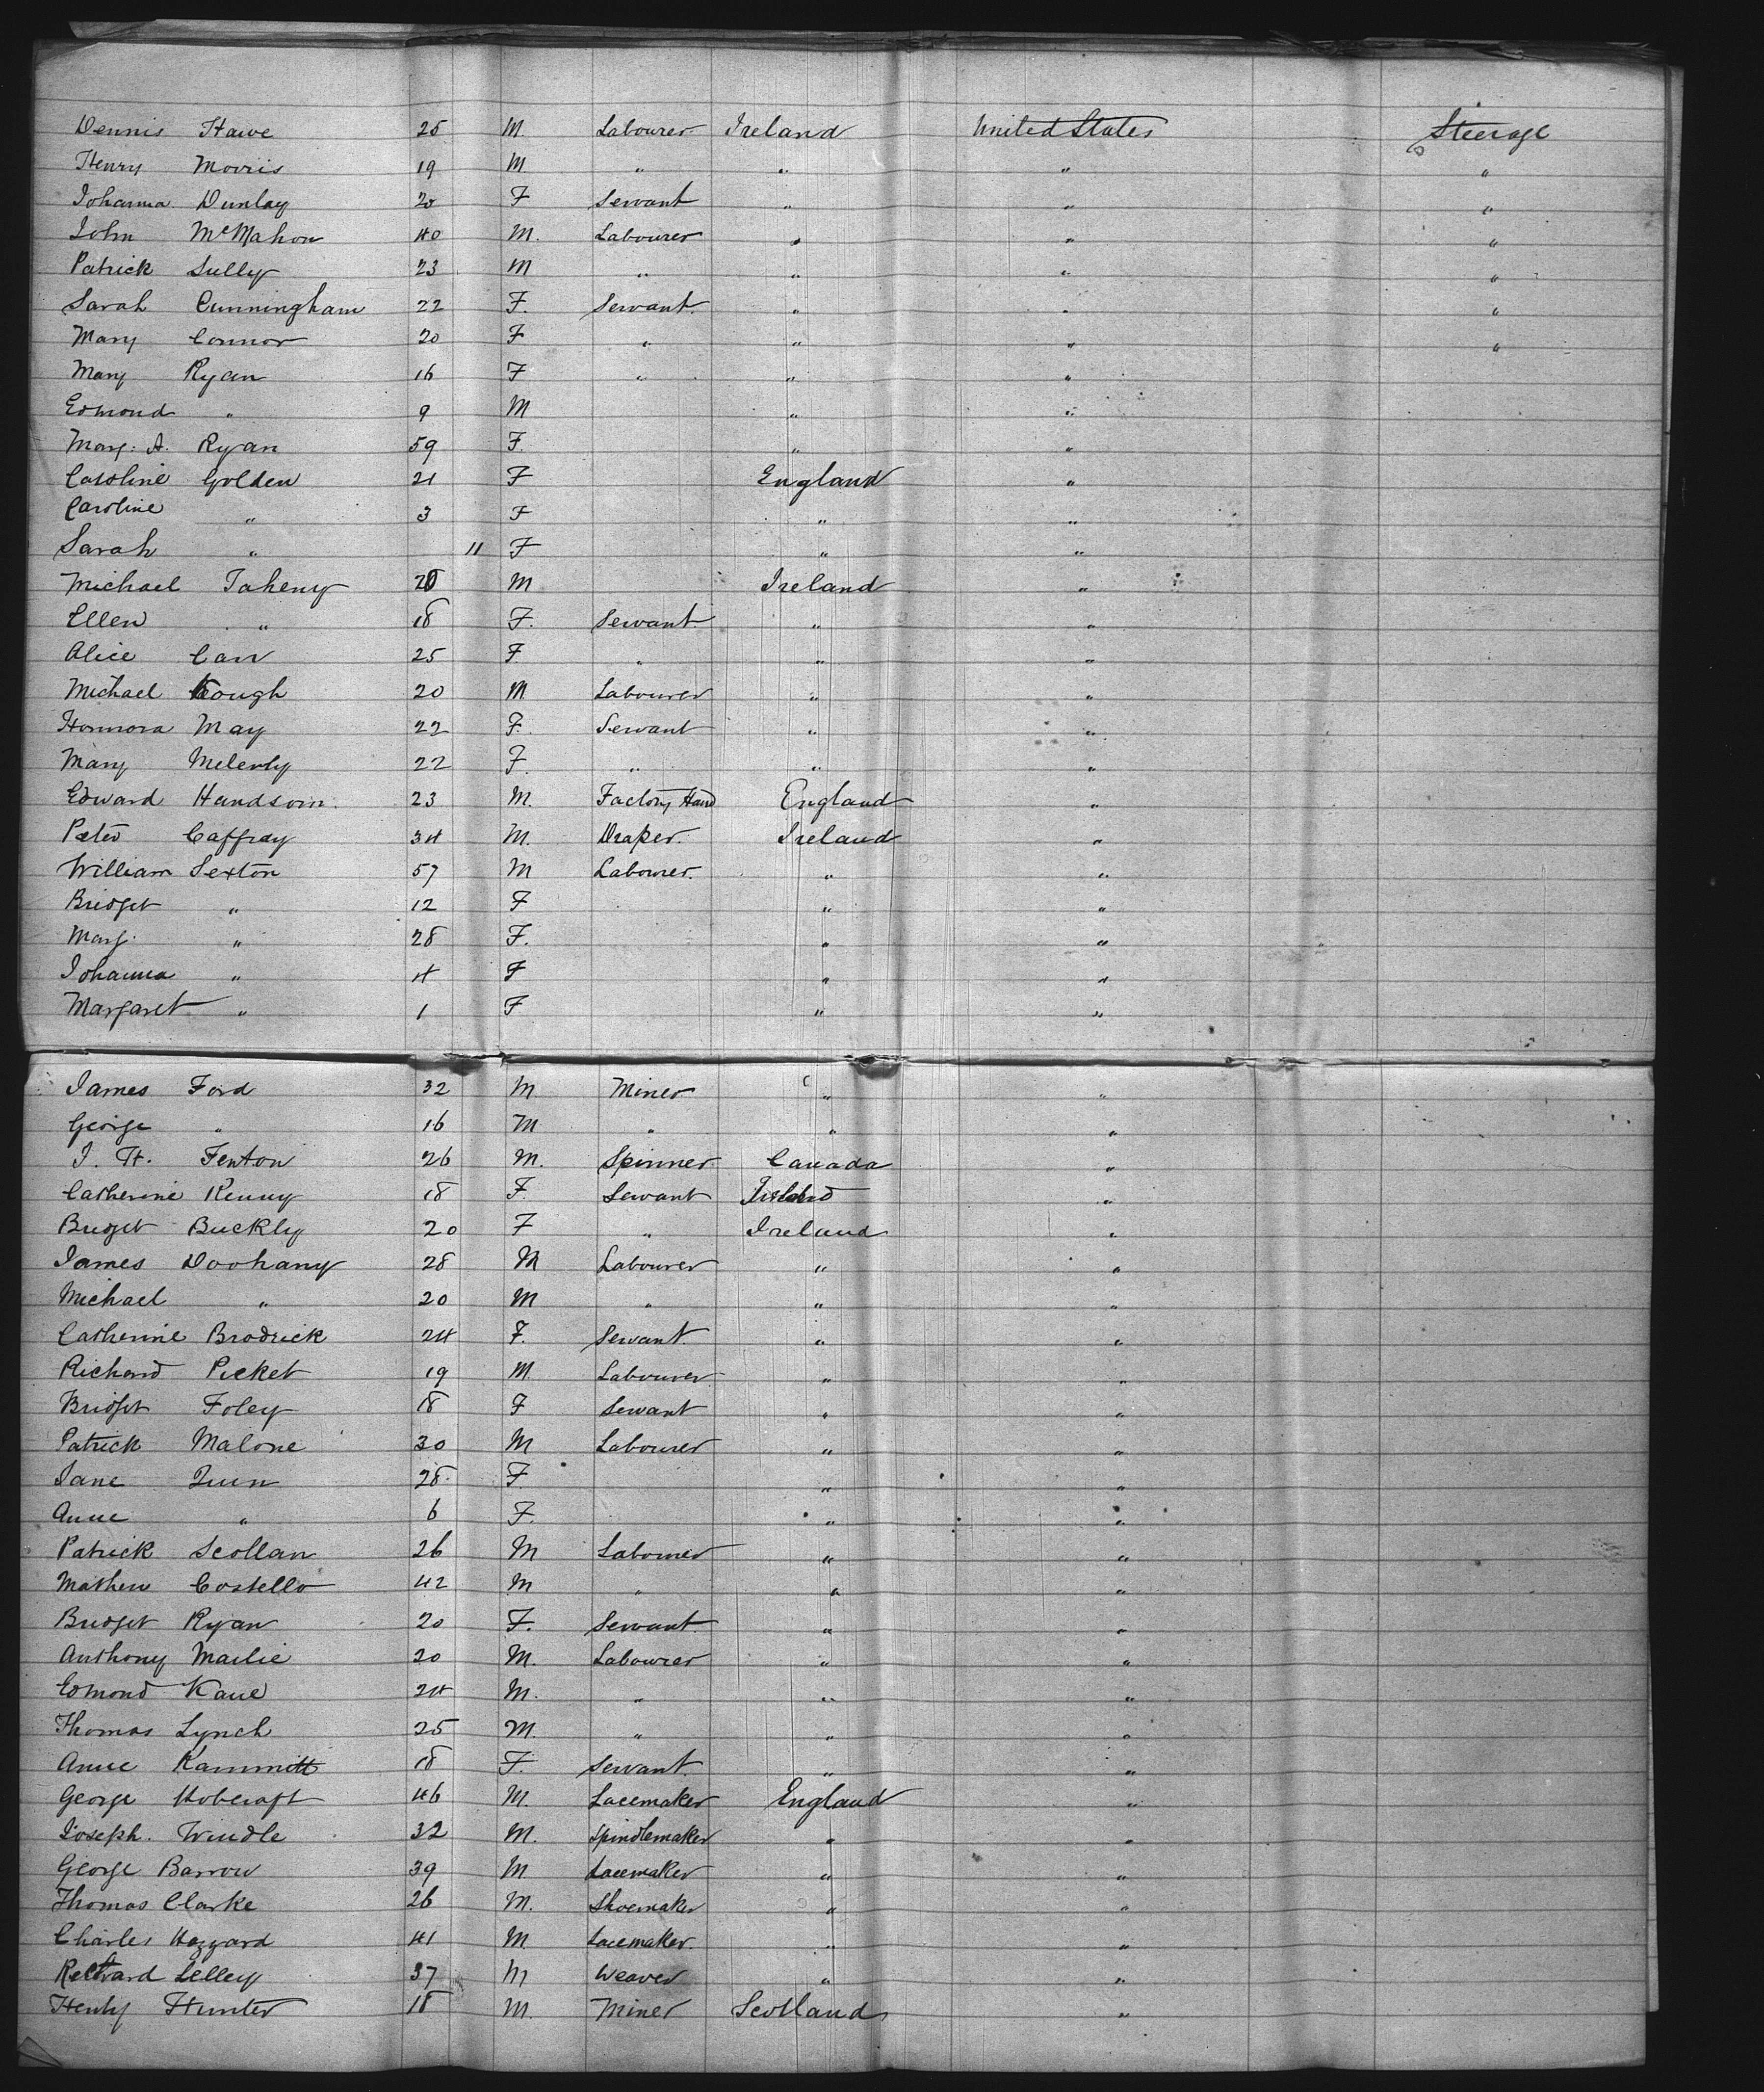 Dennis Hawe 25 M. Labourer Ireland United States Steerage
Henry Morris 19 M " " " "
Johanna Dunlay 20 F Servant " " "
John McMahon 40 M. Labourer " " "
Patrick Sully 23 M " " " "
Sarah Cunningham 22 F. Servant " " "
Mary Connor 20 F " " " "
Mary Ryan 16 F " " "
Edmond " 9 M " "
Marg: A. Ryan 59 F. " "
Caroline Golden 21 F England "
Caroline " 3 F " "
Sarah " 11 F " "
Michael Taheny 20 M Ireland "
Ellen " 18 F. Servant " "
Alice Carr 25 F " " "
Michael Keough 20 M Labourer " "
Honnora May 22 F. Servant " "
Mary 22 F. " " "
Edward Handsom 23 M. Factory Hand England "
Peter Caffray 34 M. Draper. Ireland "
William Sexton 57 M Labourer. " "
Bridget " 12 F " "
Marg. " 28 F. " "
Johanna " 4 F " "
Margaret " 1 F " "
James Ford 32 M Miner " "
George " 16 M " " "
J. H. Fenton 26 M. Spinner Canada "
Catherine Kenny 18 F. Servant Ireland "
Bridget Buckly 20 F " Ireland "
James Doohany 28 M Labourer " "
Michael " 20 M " " "
Catherine Brodrick 24 F. Servant " "
Richard Picket 19 M. Labourer " "
Bridget Foley 18 F Servant " "
Patrick Malone 30 M Labourer " "
Jane Quin 28 F. " "
Anne " 6 F. " "
Patrick Scollan 26 M Labourer " "
Mathew Costello 42 M " " "
Bridget Ryan 20 F. Servant " "
Anthony Mailie 20 M. Labourer " "
Edmond Kane 24 M. " " "
Thomas Lynch 25 M. " " "
Anne Kammitt 18 F. Servant. " "
George Hobcraft 46 M. Lacemaker England "
Joseph. Windle 32 M. Spindlemaker " "
George Barrow 39 M Lacemaker " "
Thomas Clarke 26 M. Shoemaker " "
Charles Hazzard 41 M Lacemaker. " "
Lelley 37 M Weaver " "
Henry Hunter 18 M. Miner Scotland "